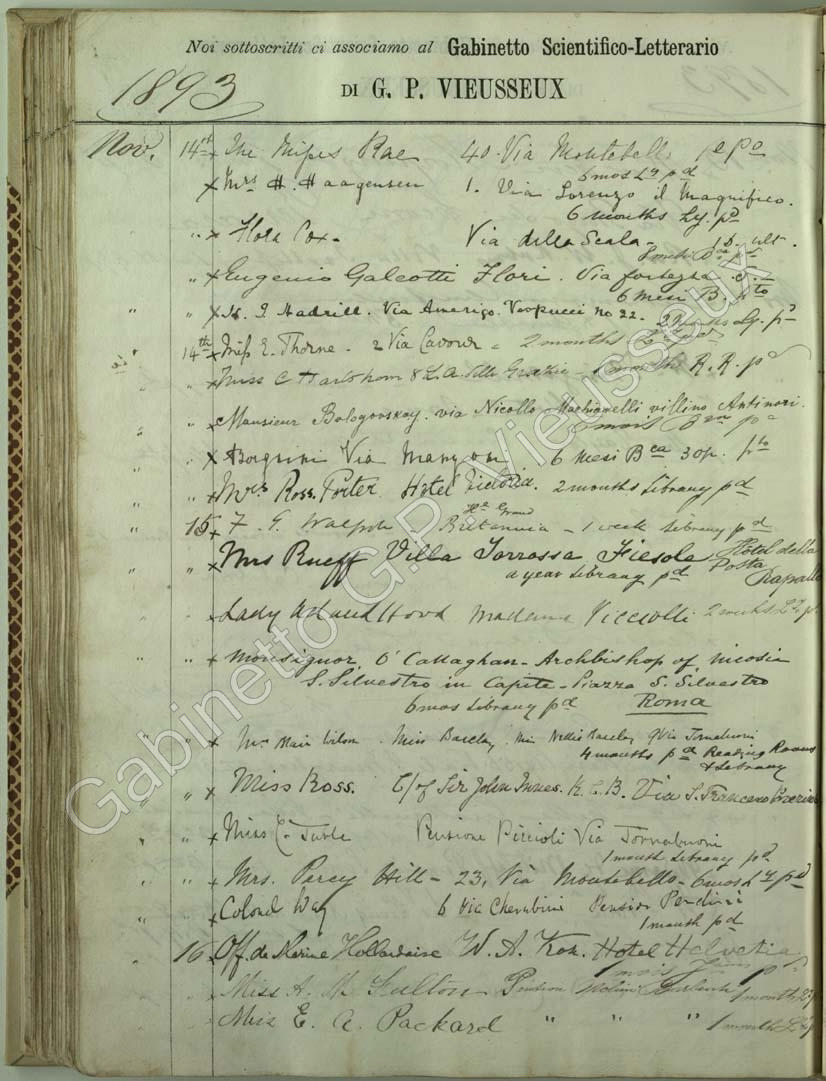 Noi sottoscritti ci associamo al Gabinetto Scientifico-Letterario
DI G. P. VIEUSSEUX
1893
Nov. 14 The Misses Rae 40 Via Montebello pd
6 mos Ly pd
Mrs H. Haagensen 1. Via Lorenzo il Magnifico.
6 months Ly. pd
" Flora Cox - Via della Scala -
" Eugenio Galeotti Flori. Via
6 Mesi B. pto
" " Hadrill. Via Amerigo Vespucci No 22. 2 months Ly. pd
14th Miss E. Thorne - 2 Via Cavour - 2 months
" " Miss C Hartshorn 8 L. A. delle Grazie - months R. R. pd
" " Monsieur Bologovskoy. via Nicollo Machiavelli villino Antinori.
" " Via Manzoni 6 Mesi Bca 3 op. pto
" " Mrs Ross. Porter Hotel Victoria. 2 months Library pd
Hl Grand
" 15 F. G. Walpole - Britannia - 1 week Library pd
" " Mrs Rueff Villa Fiesole Hotel della
a year Library pd Posta
Rapallo
" " Lady Maud Madame Piccioli 2 weeks Ly pd
" " Monsignor O'Callaghan - Archbishop of Nicosia
S. Silvestro in Capite - Piazza S. Silvestro
6 mos Library pd Roma
" " Wilson. Miss Barclay. Miss Nellie Barclay Via Tornabuoni
4 months pd Reading Rooms
& Library
" " Miss Ross. C/o Sir John Innes. K. C. B. Via S. Francesco
" " Miss E. Pensione Piccioli Via Tornabuoni
1 month Library pd
" " Mrs. Percy Hill - 23, Via Montebello - 6 mos Ly pd
" " Colonel Way 6 Via Cherubini Pension Pendini
1 month pd
16 Off. de Marine Hollandaise W. A. Kok. Hotel Helvetia
1 mois
Miss A. M. Fulton Pension 1 month Ly
" Miss E. A. Packard " " " 1 month Ly
Gabinetto G.P. Vieusseux